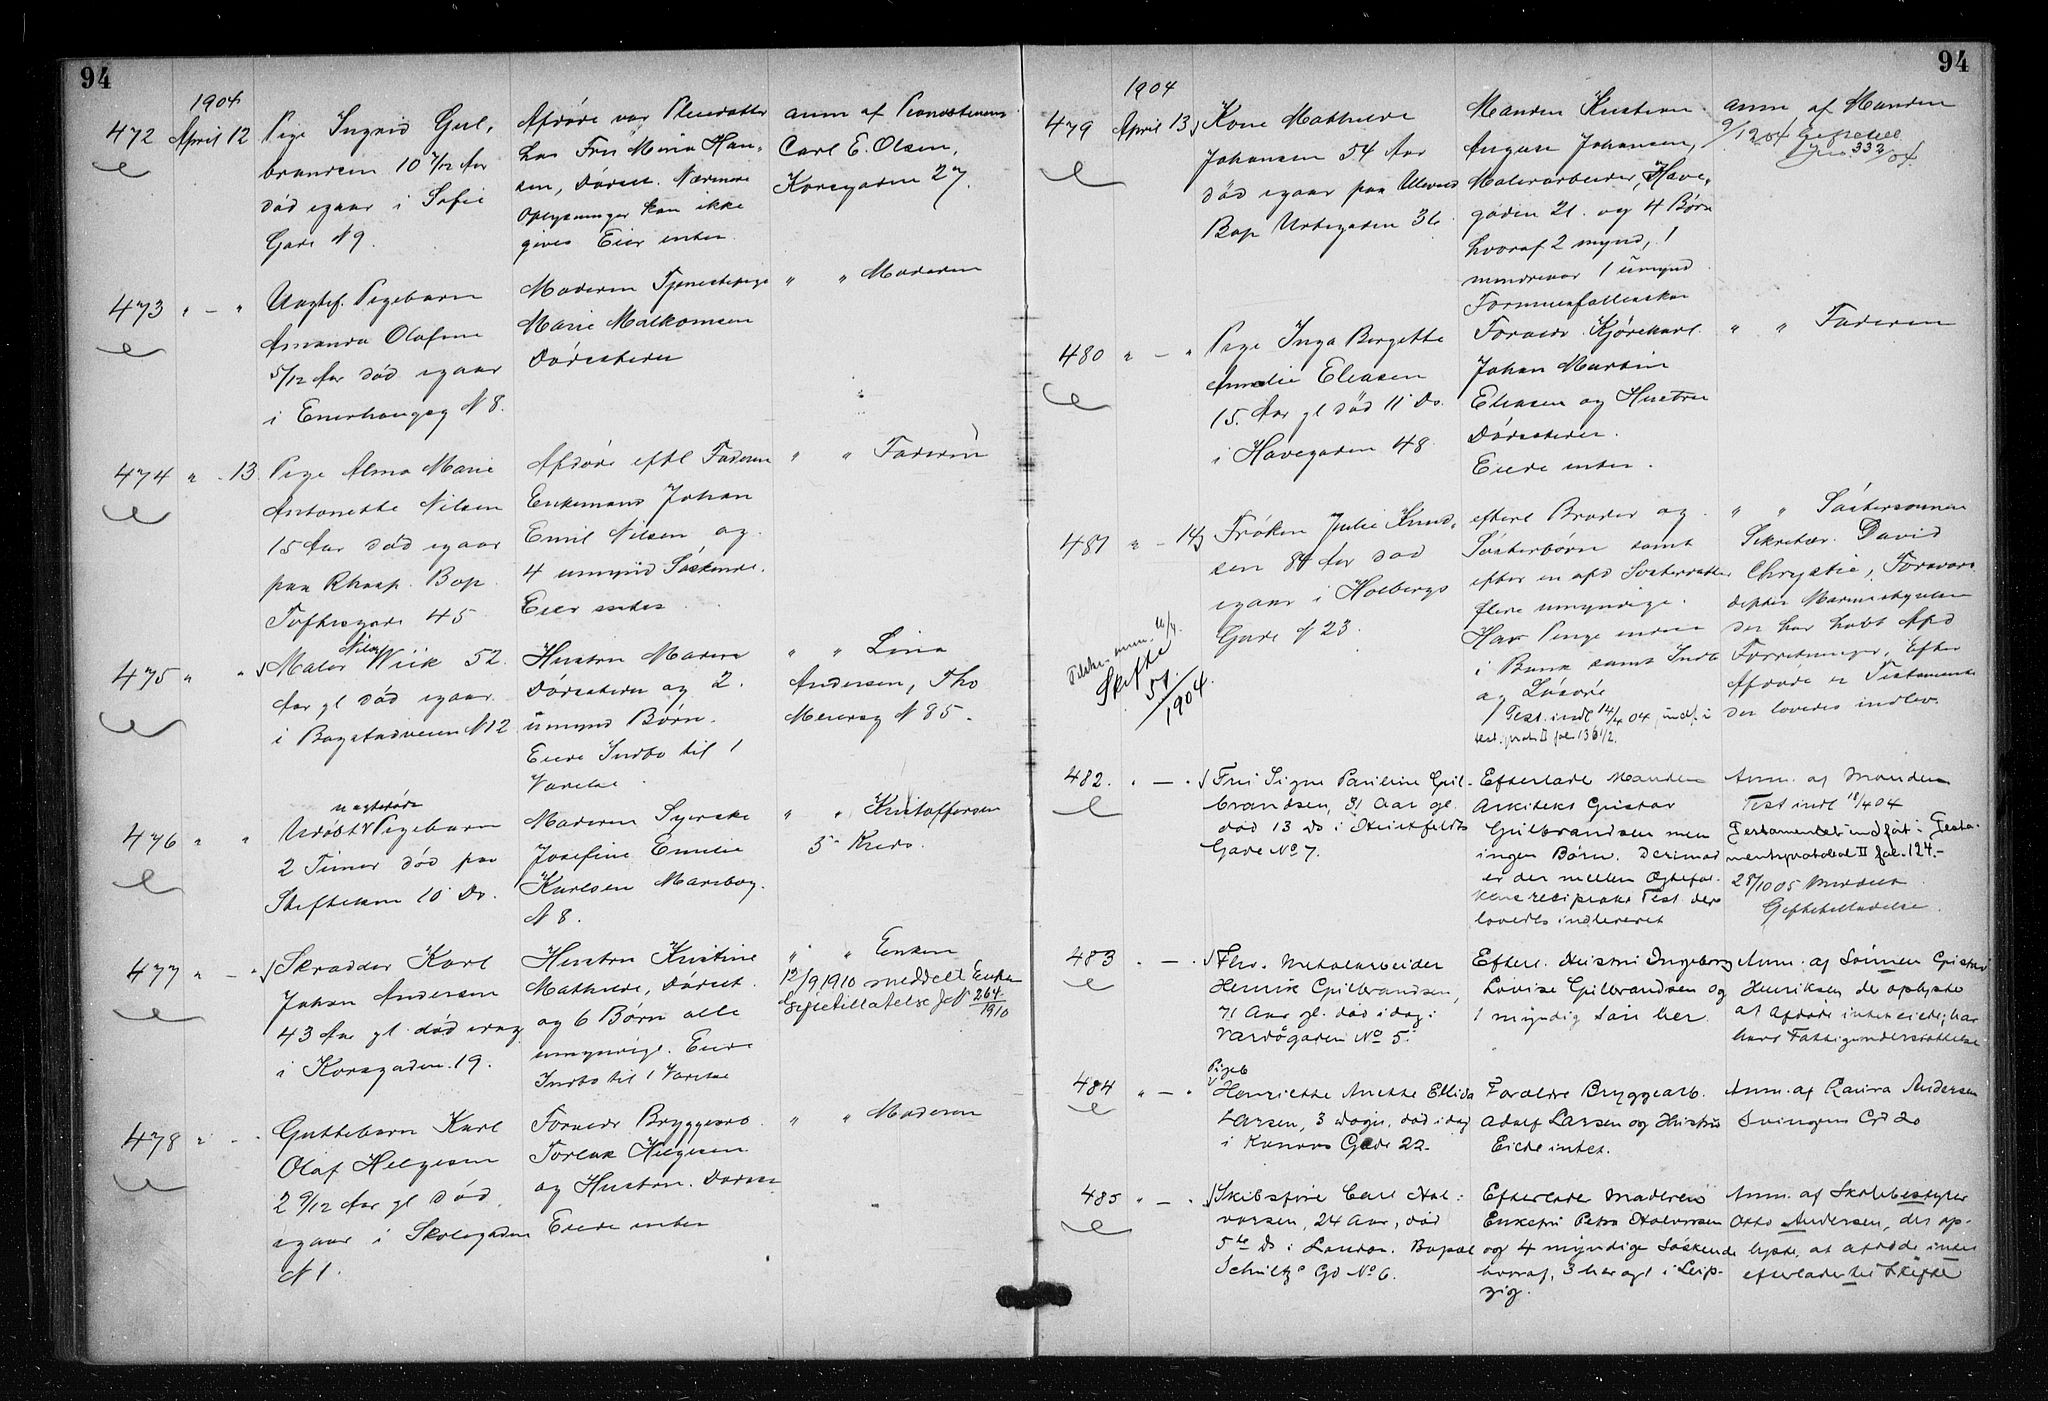 94
1904
472 April 12 Pige Ingrid Gul-
brandsen 10 7/12 Aar
død igaar i Sofie
Gade N 9.
Afdøde var Pleiedatter
hos Fru Maria Han-
sen, Dødsst. Nærmere
Oplysninger kan ikke
gives Eier intet.
anm af
Carl E. Olsen,
Korsgaden 27.
473 " - " Uægtef. Pigebarn
Amanda Olafine
5/12 Aar død igaar
i Enerhaugsg N 8.
Moderen Tjenestepige
Marie Malkomsen
Dødsstedet
" " Moderen
474 " - 13. Pige Alma Marie
Antonette Nilsen
15 Aar død igaar
paa Rhosp. Bop.
Toftesgade 45
Afdøde eftl Faderen
Enkemand Johan
Emil Nilsen og
4 umynd Søskende.
Eier intet
" " Faderen
475 " " Maler Nils Wiik 52.
Aar gl død igaar
i Bogstadveien N 12
Hustru
Dødsstedet og 2
umynd Børn.
Eiede Indbo til 1
Værelse
" " Lina
Andersen, Tho
Meiersg N 85.
476 " " uægtefødt
Udøbt Pigebarn
2 Timer død paa
Stiftelsen 10 Ds.
Moderen Syerske
Josefine Emilie
Karlsen Maribog.
N 8.
" " Kristoffersen
5 Kreds.
477 " - " Skrædder Karl
Johan Andersen
43 Aar gl død idag
i Korsgaden 19.
Hustru Kristine
Mathilde, Dødsst.
og 6 Børn alle
umyndige. Eiede
Indbo til 1 Værelse
" " Enken
12/9 1910 meddelt Enken
Giftetilladelse J. N 264/1910
478 " - " Guttebarn Karl
Olaf Helgesen
2 9/12 Aar gl død
igaar i Skolegaden
N 1.
Forældr Bryggearb.
Torleik Helgesen
og Hustru. Dødsst
Eiede intet
" " Moderen
94
1904
479 April 13 Kone Mathilde
Johansen 54 Aar
død igaar paa Ulevaal
Bop Urtegaden 36
Manden Kristian
August Johansen,
Malerarbeider, Have-
gaden 21. og 4 Børn
hvoraf 2 mynd, 1
mindreaar 1 umynd
Formuesfællesskar
anm af Manden
9/12 04 Giftetill
Jno 333/04.
480 " - " Pige Inga Bergette
Amalie Eliasen
15. Aar gl død 11 Ds.
i Havegaden 48.
Forældr Kjørekarl
Johan Martin
Eliasen og Hustru
Dødsstedet.
Eiede intet.
" " Faderen
481 " - 14 Frøken Julie Knud-
sen 84 Aar død
igaar i Holbergs
Gade N 23.
Skifte
51/1904.
efterl Broder og
Søsterbørn samt
efter en afd Søsterdatter
flere umyndige.
Har Penge indsat
i Bank samt Indbo
og Løsøre
Test. indl 14/4 04, indf. i
test. prot. II fol. 136 1/2.
" " Søstersønnen
Sekretær David
Chrystie, Forsvars
deptes Marinestyrelse
der har havt Afd
Forretninger, Efter
Afdøde er Testamente
der lovedes indlev.
482. " - " Fru Signe Pauline Gul-
brandsen, 31 Aar gl.
død 13 Ds i Huitfeldts
Gade No 7.
Efterlade Manden
Arkitekt Gustav
Gulbrandsen men
ingen Børn. Derimod
er der mellem Ægtefol-
kene reciprokt Test der
lovedes indleveret
Anm. af Manden
Test indl 18/4 04
Testamentet indført i Testa-
mentsprotokol II fol. 124.-
28/10 05 Meddelt
Giftetilladelse.
483 " - " Fhv. Metalarbeider
Henrik Gulbrandsen,
71 Aar gl. død idag i
Vardøgaden No 5.
Efterl. Hustru Ingeborg
Lovise Gulbrandsen og
1 myndig Søn her.
Anm. af Sønnen Gustav
Henriksen der oplyste
at Afdøde intet eiede, har
havt Fattigunderstøttelse
484 " - " Pigeb
Henriette Anette Ellida
Larsen, 3 Dage, død idag
i Kanons Gade 22.
Forældre Bryggearb.
Adolf Larsen og Hustru
Eiede intet.
Anm. af Laura Andersen
Svingens Gd 20
485 " - " Skibsfører Carl Hal-
vorsen, 24 Aar, død
5te Ds i London. Bopæl
Schultz' Gd No 6.
Efterlade Moderen
Enkefru Petra Halvorsen
og 4 myndige Søskende
hvoraf, 3 her og 1 i Leip-
zig.
Anm. af Skolebestyrer
Otto Andersen, der op-
lyste, at afdøde intet
efterlader til Skifte